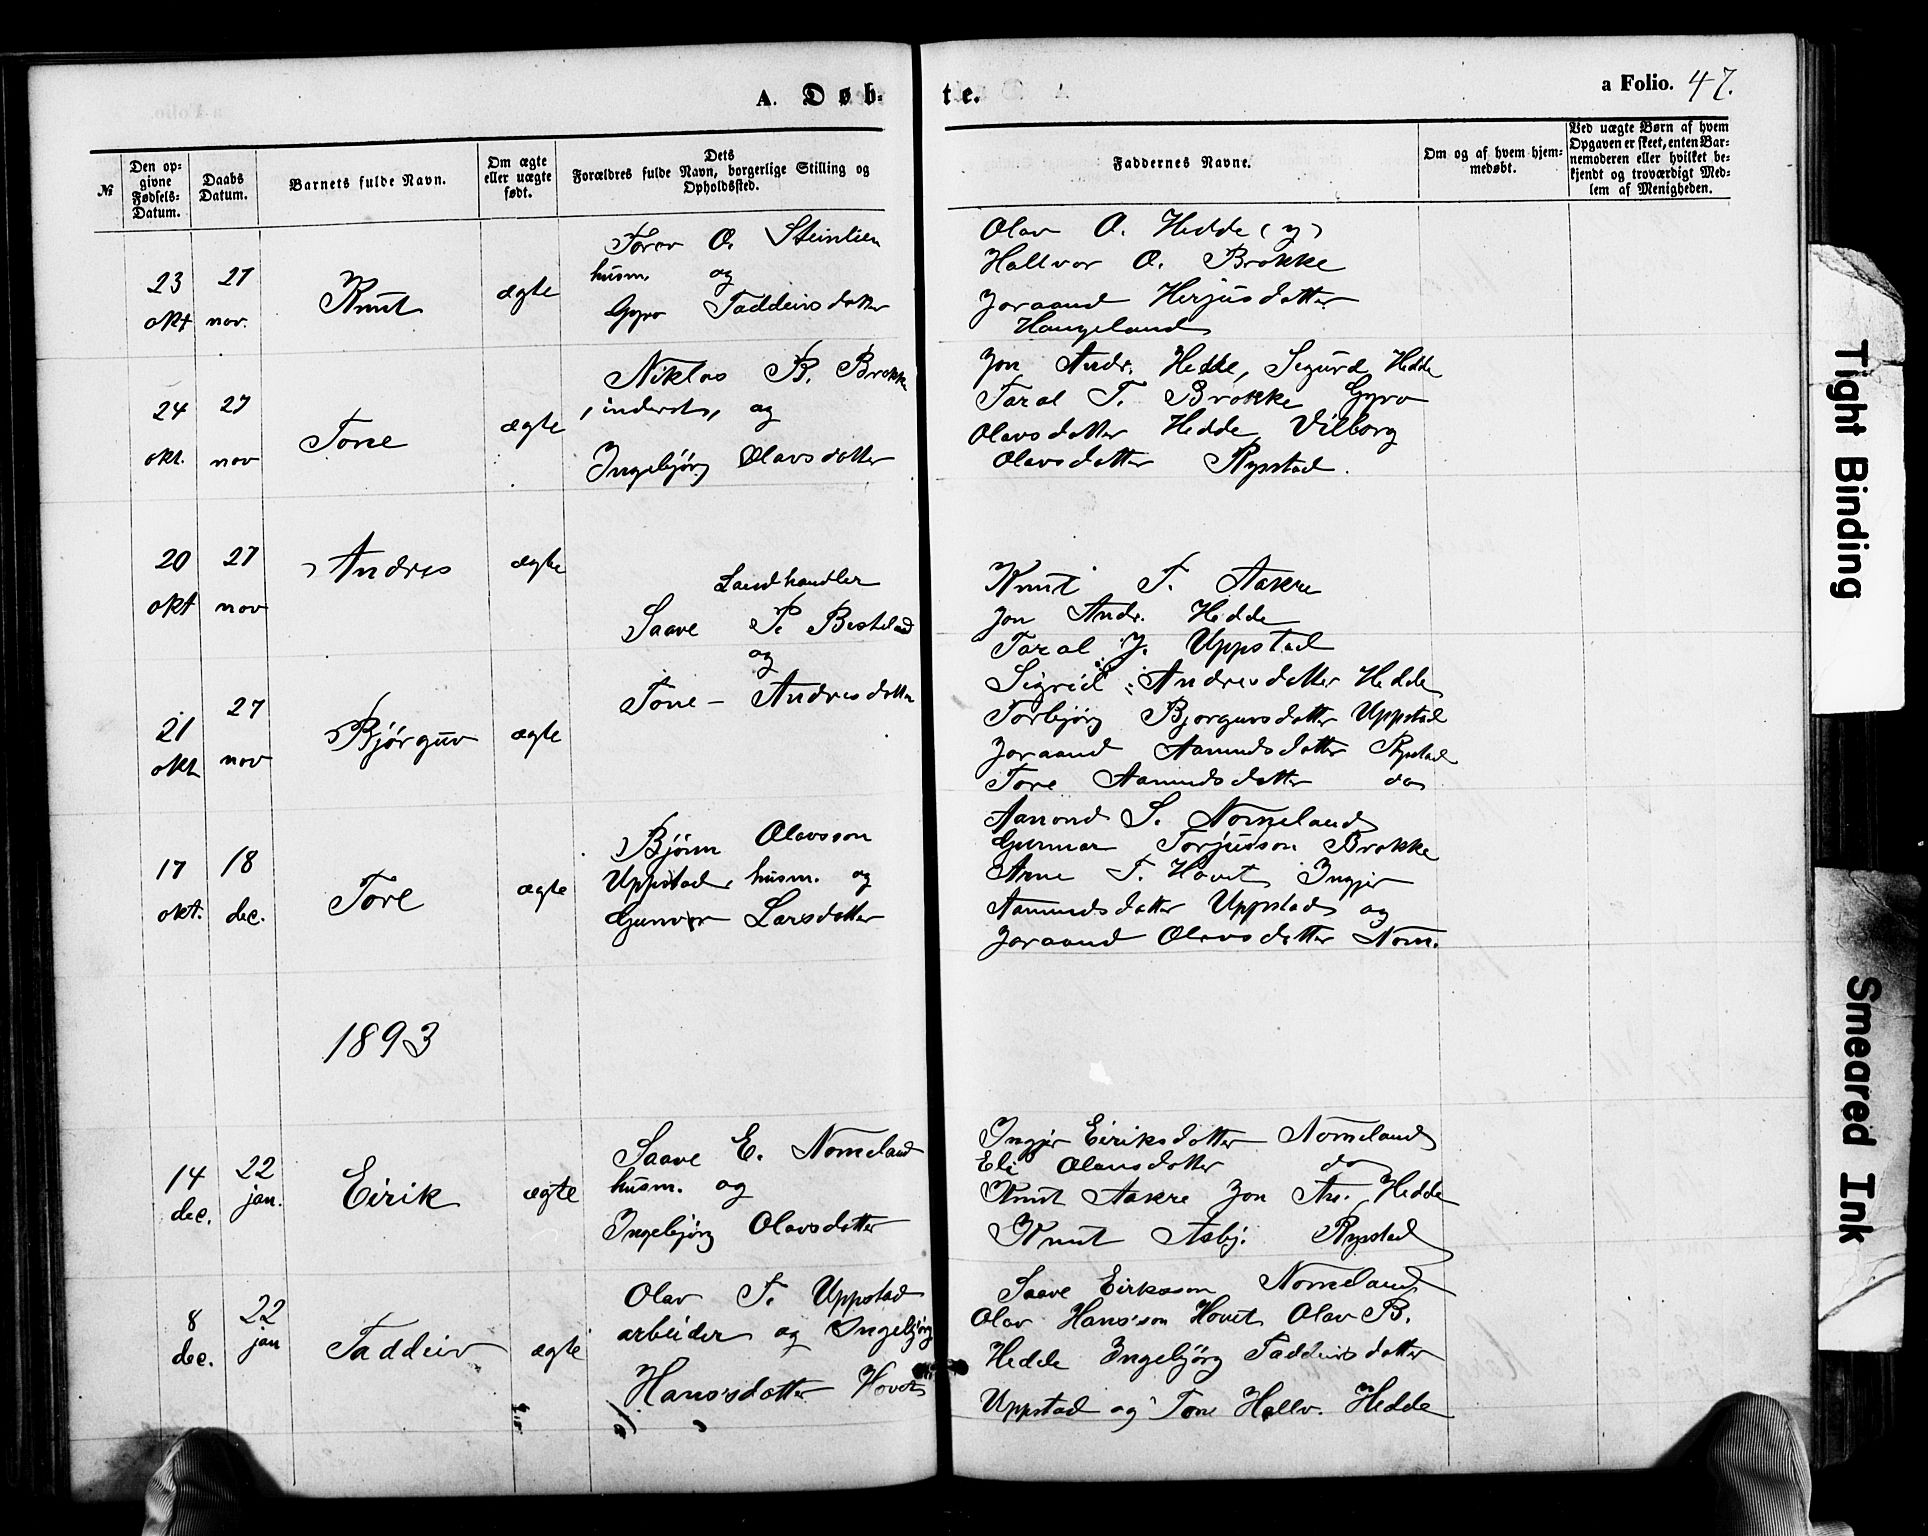 A. Døb-
te.
a Folio. 47.
№
Den op-
givne
Fødsels-
Datum.
Daabs
Datum.
Barnets fulde Navn.
Om ægte
eller uægte
født.
Dets
Forældres fulde Navn, borgerlige Stilling og
Opholdssted.
Faddernes Navne.
Om og af hvem hjem-
medøbt.
Ved uægte Børn af hvem
Opgaven er skeet, enten Bar-
nemoderen eller hvilket be-
kjendt og troværdigt Med-
lem af Menigheden.
23
okt
27
nov.
Knut
ægte
Torov O. Steinlien
husm. og
Gyro Taddeivsdatter
Olav O. Hedde (y)
Hallvor O. Brokke
Joraand Herjusdatter
Haugeland
24
okt.
27
nov
Tone
ægte
Niklos B. Brokke
, inderst, og
Ingebjörg Olavsdatter
Jon Andr. Hedde, Sigurd Hedde
Tarol T. Brokke Gyro
Olavsdatter Hedde Vilborg
Olavsdatter Rysstad.
20
okt
27
nov
Andres
ægte
Landhandler
Saave P. Besteland
og
Tone - Andresdatter
Knut T. Aakre
Jon Andr. Hedde
Tarol J. Uppstad
Sigrid Andresdatter Hedde
21
okt
27
nov
Bjørguv
ægte
Torbjörg Bjorguvsdatter Uppstad
Joraand Aamundsdatter Rysstad
Tore Aamundsdatter do
17
okt.
18
dec.
Tore
ægte
Bjönn Olavsson
Uppstad, husm. og
Gunvor Larsdatter
Aanond S. Nomeland
Gunnar Torjusson Brokke
Arne T. Hovet Ingjer
Aamundsdatter Uppstad og
Joraand Olavsdatter Nom.
1893
14
dec.
22
jan.
Eirik
ægte
Saave E. Nomeland
husm. og
Ingebjörg Olavsdatter
Ingjer Eiriksdatter Nomeland
Eli Olavsdatter do
Knut Aakre Jon An. Hedde
Knut Asbj. Rysstad
8
dec.
22
jan
Taddeiv
ægte
Olav T. Uppstad
arbeider og Ingebjörg
Hansdatter Hovet
Saave Eirksson Nomeland
Olav Hansson Hovet Olav B.
Hedde Ingebjörg Taddeivsdatter
Uppstad og Tone Hallv. Hedde
Tight Binding
Smeared Ink